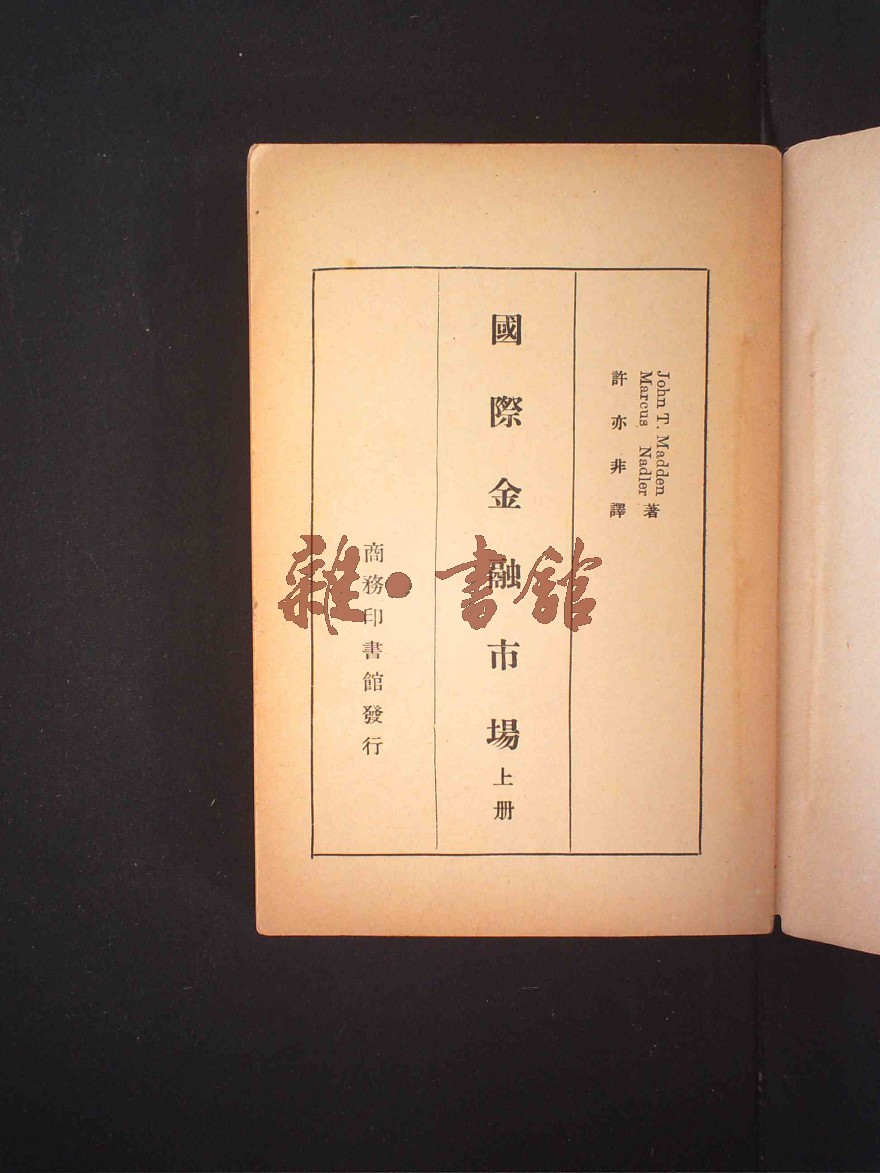 John T. Madden
Marcus Nadler 著
許亦非譯
國際金融市場 上册
商務印書館發行
雜·書館